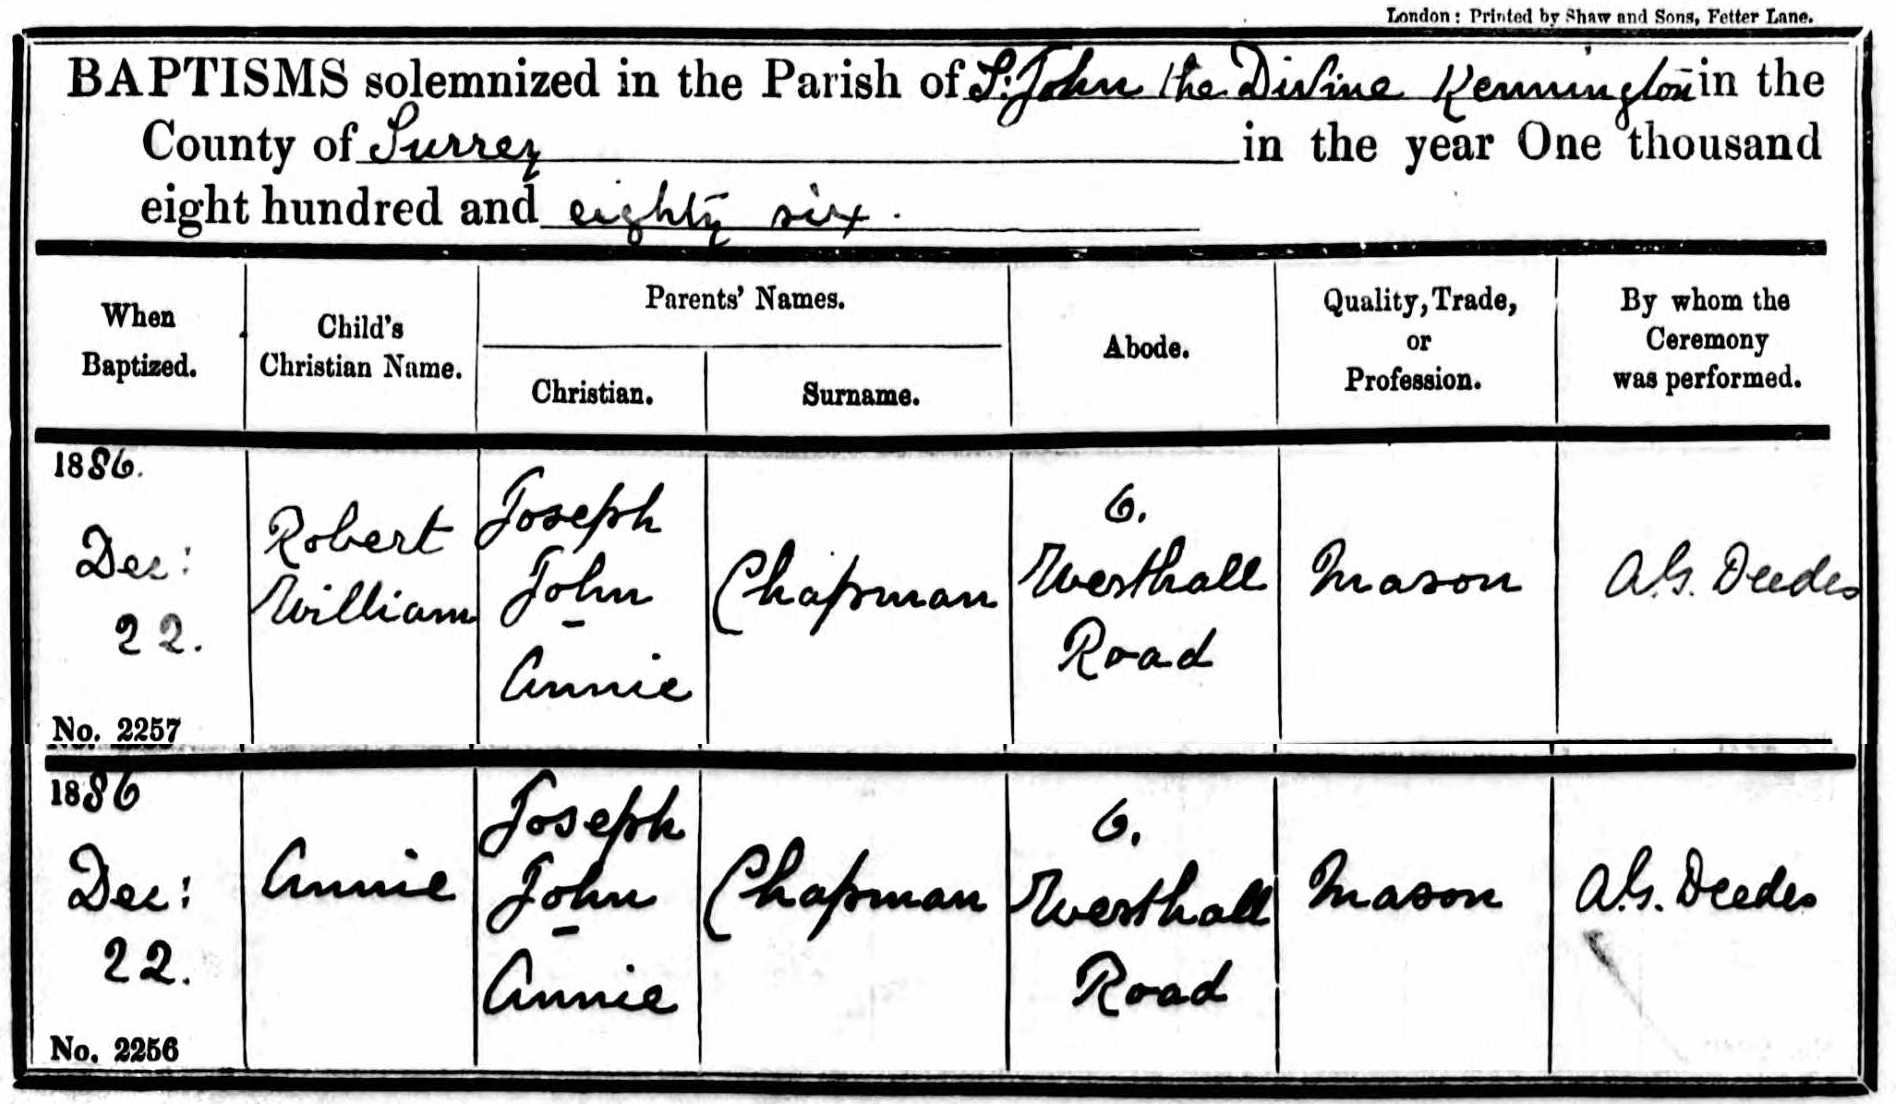 London: Printed by Shaw and Sons, Fetter Lane.
BAPTISMS solemnized in the Parish of S. John the Divine Kennington in the
County of Surrey in the year One thousand
eight hundred and eighty six.
When Baptized.
Child's Christian Name.
Parents' Names.
Christian.
Surname.
Abode.
Quality, Trade, or Profession.
By whom the Ceremony was performed.
1886.
Dec:
22.
No. 2257
Robert
William
Joseph
John
-
Annie
Chapman
6.
Westhall
Road
Mason
A.G. Deedes
No. 2257
1886
Dec:
22.
No. 2256
Annie
Joseph
John
-
Annie
Chapman
6.
Westhall
Road
Mason
A.G. Deedes